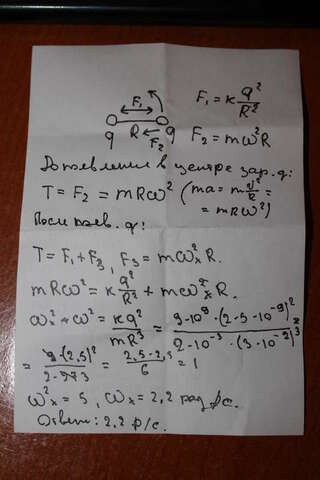 F₁ F₁ = к q²/R²
q R F₂ q F₂ = mω²R
До появления в центре зар. q:
T = F₂ = mRω² (ma = m v²/R =
= mRω²)
После появ. q:
T = F₁ + F₃, F₃ = mωₓ²R.
mRω² = к q²/R² + mωₓ²R.
ωₓ² ω² = кq²/mR³ = 9·10⁹·(2·5·10⁻⁹)²/2·10⁻³·(3·10⁻²)³ =
= 9·(2,5)²/2·273 = 2,5·2,5/6 = 1
ωₓ² = 5, ωₓ = 2,2 рад/с.
Ответ: 2,2 р/с.